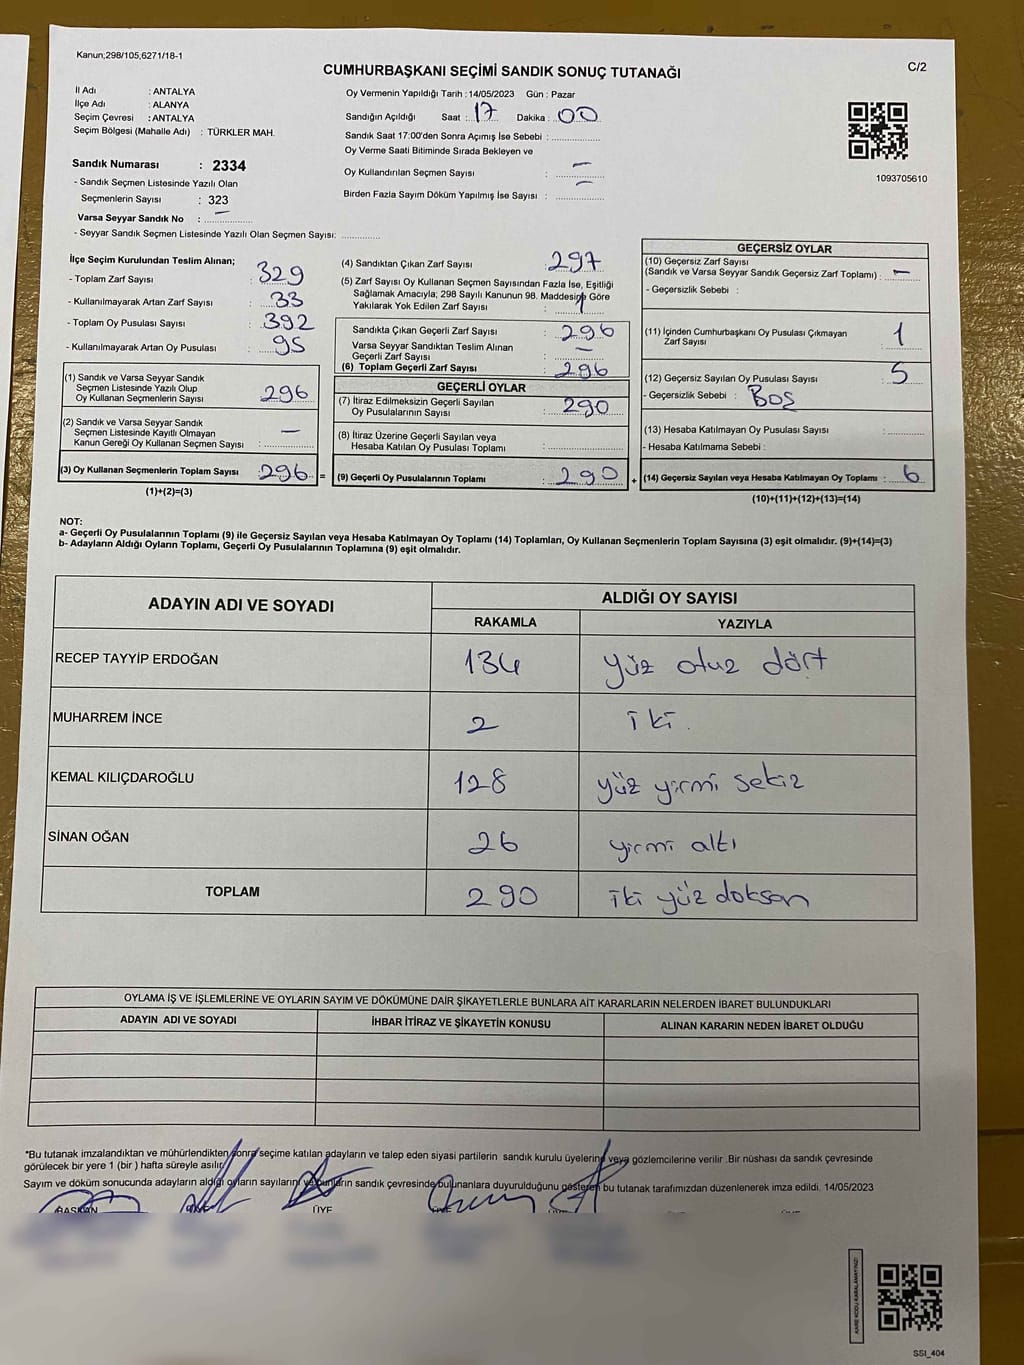 Kanun;298/105;6271/18-1
C/2
CUMHURBAŞKANI SEÇİMİ SANDIK SONUÇ TUTANAĞI
İl Adı : ANTALYA
İlçe Adı : ALANYA
Seçim Çevresi : ANTALYA
Seçim Bölgesi (Mahalle Adı) : TÜRKLER MAH.
Sandık Numarası : 2334
- Sandık Seçmen Listesinde Yazılı Olan
Seçmenlerin Sayısı : 323
Varsa Seyyar Sandık No : –
- Seyyar Sandık Seçmen Listesinde Yazılı Olan Seçmen Sayısı: ..............
Oy Vermenin Yapıldığı Tarih : 14/05/2023 Gün : Pazar
Sandığın Açıldığı Saat : 17 Dakika : 00
Sandık Saat 17:00'den Sonra Açımış İse Sebebi : ..............
Oy Verme Saati Bitiminde Sırada Bekleyen ve
Oy Kullandırılan Seçmen Sayısı : –
Birden Fazla Sayım Döküm Yapılmış İse Sayısı : –
1093705610
İlçe Seçim Kurulundan Teslim Alınan;
- Toplam Zarf Sayısı : 329
- Kullanılmayarak Artan Zarf Sayısı : 33
- Toplam Oy Pusulası Sayısı : 392
- Kullanılmayarak Artan Oy Pusulası : 95
(1) Sandık ve Varsa Seyyar Sandık
Seçmen Listesinde Yazılı Olup
Oy Kullanan Seçmenlerin Sayısı : 296
(2) Sandık ve Varsa Seyyar Sandık
Seçmen Listesinde Kayıtlı Olmayan
Kanun Gereği Oy Kullanan Seçmen Sayısı : –
(3) Oy Kullanan Seçmenlerin Toplam Sayısı : 296 =
(1)+(2)=(3)
(4) Sandıktan Çıkan Zarf Sayısı : 297
(5) Zarf Sayısı Oy Kullanan Seçmen Sayısından Fazla İse, Eşitliği
Sağlamak Amacıyla; 298 Sayılı Kanunun 98. Maddesine Göre
Yakılarak Yok Edilen Zarf Sayısı : 1
Sandıkta Çıkan Geçerli Zarf Sayısı : 296
Varsa Seyyar Sandıktan Teslim Alınan
Geçerli Zarf Sayısı : –
(6) Toplam Geçerli Zarf Sayısı : 296
GEÇERLİ OYLAR
(7) İtiraz Edilmeksizin Geçerli Sayılan
Oy Pusulalarının Sayısı : 290
(8) İtiraz Üzerine Geçerli Sayılan veya
Hesaba Katılan Oy Pusulası Toplamı : ..............
(9) Geçerli Oy Pusulalarının Toplamı : 290 +
GEÇERSİZ OYLAR
(10) Geçersiz Zarf Sayısı
(Sandık ve Varsa Seyyar Sandık Geçersiz Zarf Toplamı) : –
- Geçersizlik Sebebi :
(11) İçinden Cumhurbaşkanı Oy Pusulası Çıkmayan
Zarf Sayısı : 1
(12) Geçersiz Sayılan Oy Pusulası Sayısı : 5
- Geçersizlik Sebebi : BOŞ
(13) Hesaba Katılmayan Oy Pusulası Sayısı : ..............
- Hesaba Katılmama Sebebi :
(14) Geçersiz Sayılan veya Hesaba Katılmayan Oy Toplamı : 6
(10)+(11)+(12)+(13)=(14)
NOT:
a- Geçerli Oy Pusulalarının Toplamı (9) ile Geçersiz Sayılan veya Hesaba Katılmayan Oy Toplamı (14) Toplamları, Oy Kullanan Seçmenlerin Toplam Sayısına (3) eşit olmalıdır. (9)+(14)=(3)
b- Adayların Aldığı Oyların Toplamı, Geçerli Oy Pusulalarının Toplamına (9) eşit olmalıdır.
ADAYIN ADI VE SOYADI ALDIĞI OY SAYISI
RAKAMLA YAZIYLA
RECEP TAYYİP ERDOĞAN 134 yüz otuz dört
MUHARREM İNCE 2 iki.
KEMAL KILIÇDAROĞLU 128 yüz yirmi sekiz
SİNAN OĞAN 26 yirmi altı
TOPLAM 290 iki yüz doksan
OYLAMA İŞ VE İŞLEMLERİNE VE OYLARIN SAYIM VE DÖKÜMÜNE DAİR ŞİKAYETLERLE BUNLARA AİT KARARLARIN NELERDEN İBARET BULUNDUKLARI
ADAYIN ADI VE SOYADI İHBAR İTİRAZ VE ŞİKAYETİN KONUSU ALINAN KARARIN NEDEN İBARET OLDUĞU
*Bu tutanak imzalandıktan ve mühürlendikten sonra seçime katılan adayların ve talep eden siyasi partilerin sandık kurulu üyelerine veya gözlemcilerine verilir .Bir nüshası da sandık çevresinde
görülecek bir yere 1 (bir ) hafta süreyle asılır.
Sayım ve döküm sonucunda adayların aldığı oyların sayılarını ve bunların sandık çevresinde bulunanlara duyurulduğunu gösteren bu tutanak tarafımızdan düzenlenerek imza edildi. 14/05/2023
BAŞKAN ÜYE
KARE KODU KARALAMAYINIZ!
SSI_404